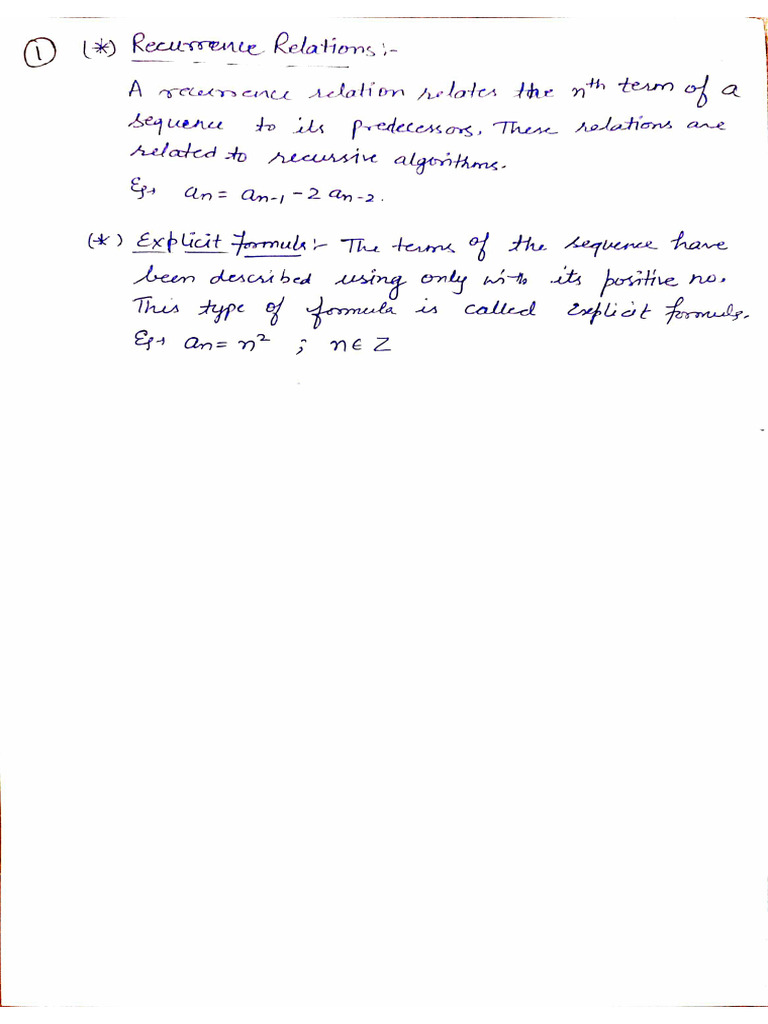 ① (*) Recurrence Relations:-
A recurrence relation relates the nth term of a
sequence to its predecessors. These relations are
related to recursive algorithms.
Eg→ an = an-1 - 2 an-2.
(*) Explicit Formula:- The terms of the sequence have
been described using only with its positive no.
This type of formula is called explicit formula.
Eg→ an = n² ; n ∈ Z